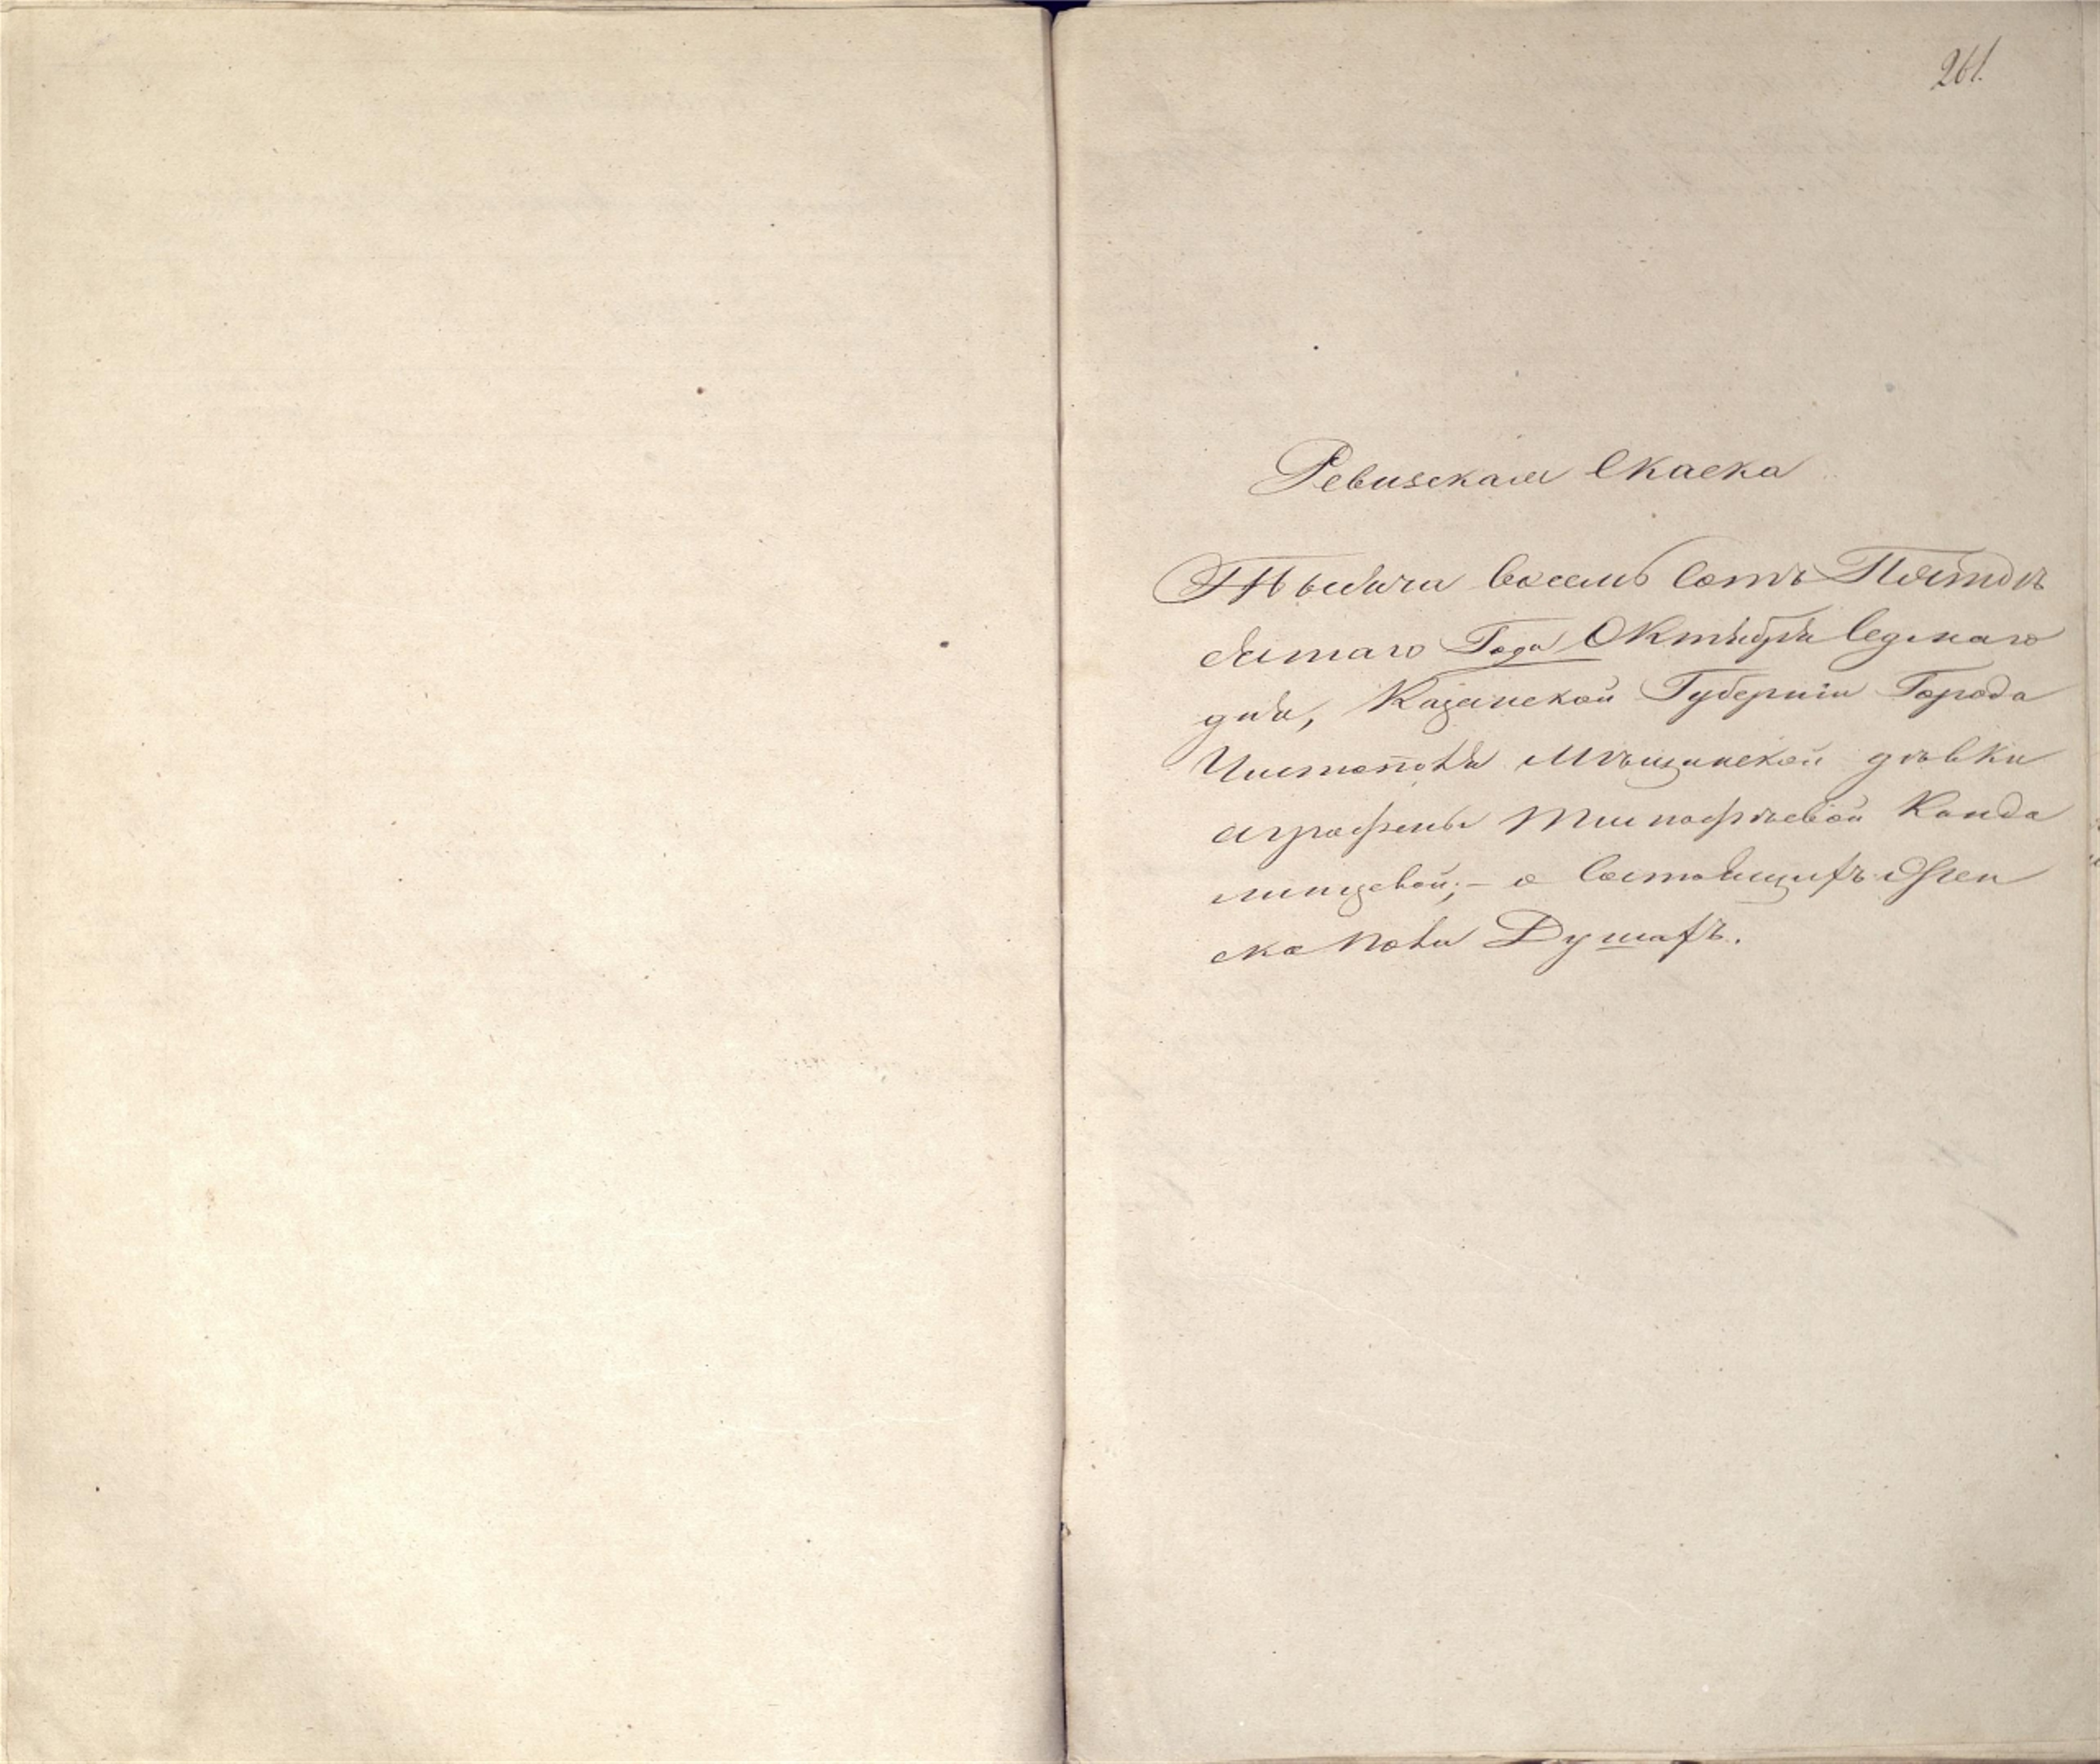 261.
Ревизская Скаска
Тысяча восемь сотъ Пятдъ
сятаго Года Октября Седмаго
дня, Казанской Губерніи Города
Чистополя Мѣщанской дѣвки
Аграфены Тимофѣевой Канда
линцевой; – о состоящихъ Жен
ска пола Душахъ.